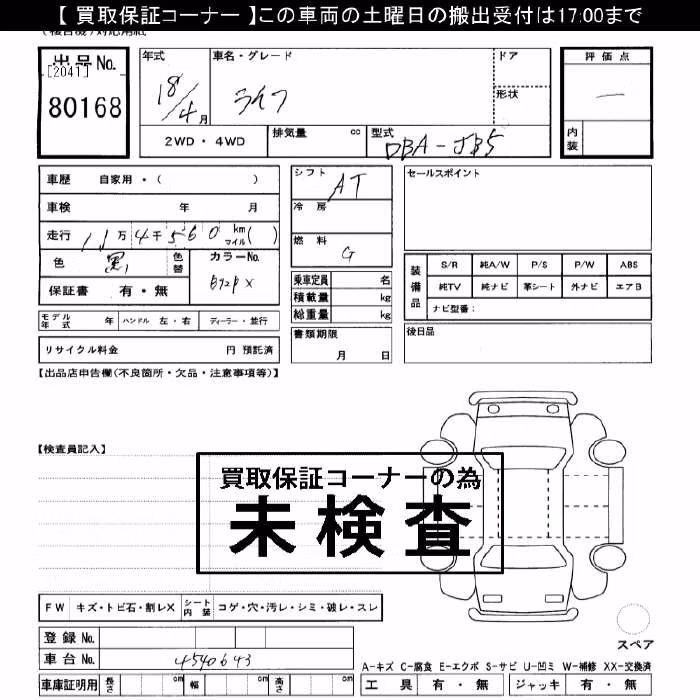 【 買取保証コーナー 】この車両の土曜日の搬出受付は17:00まで
出品No.
[2041]
80168
年式
18/4月
車名・グレード
ライフ
ドア
形状
評価点
―
内装
2WD・4WD
排気量 cc
型式 DBA-JB5
車歴 自家用・( )
車検 年 月
走行 11万4千560 km マイル( )
色 黒
色替
カラーNo.
B92P X
保証書 有・無
シフト AT
冷房
燃料 G
乗車定員 名
積載量 kg
総重量 kg
書類期限
月 日
セールスポイント
装備品
S/R 純A/W P/S P/W ABS
純TV 純ナビ 革シート 外ナビ エアB
ナビ型番：
後日品
モデル年式 年 ハンドル 左・右 ディーラー・並行
リサイクル料金 円 預託済
【出品店申告欄(不良箇所・欠品・注意事項等)】
【検査員記入】
買取保証コーナーの為
未検査
FW キズ・トビ石・割レX シート内装 コゲ・穴・汚レ・シミ・破レ・スレ
登録 No.
車台 No. 4540643
車庫証明用 長さ cm 幅 cm 高さ cm
スペア
A-キズ C-腐食 E-エクボ S-サビ U-凹ミ W-補修 XX-交換済
工具 有・無 ジャッキ 有・無